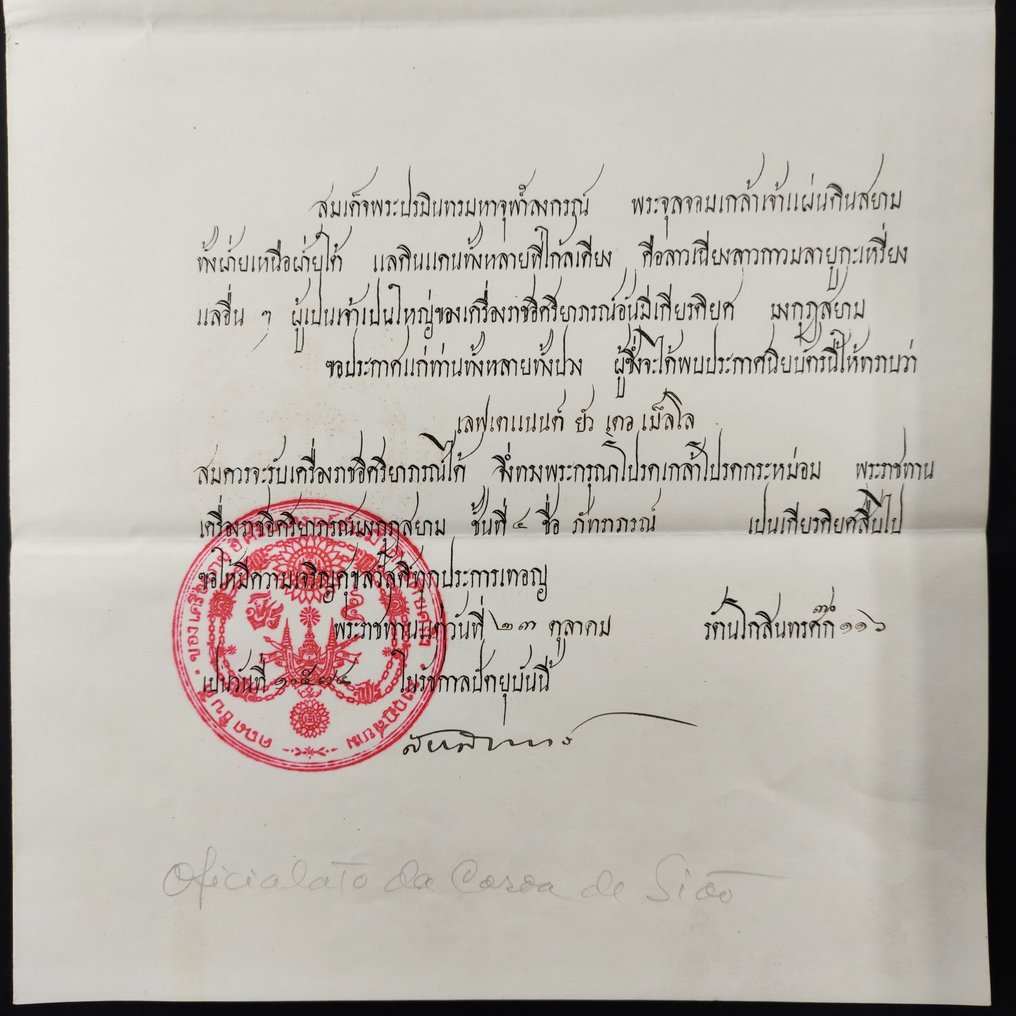 สมเด็จพระปรมินทรมหาจุฬาลงกรณ์ พระจุลจอมเกล้าเจ้าแผ่นดินสยาม
ทั้งฝ่ายเหนือฝ่ายใต้ แลดินแดนทั้งหลายที่ใกล้เคียง คือลาวเฉียงลาวกาวมลายูกะเหรี่ยง
แลอื่น ๆ ผู้เป็นเจ้าเป็นใหญ่ของเครื่องราชอิศริยาภรณ์อันมีเกียรติยศ มงกุฎสยาม
ขอประกาศแก่ท่านทั้งหลายทั้งปวง ผู้ซึ่งจะได้พบประกาศนิยบัตรนี้ให้ทราบว่า
เลฟเตแนนต์ ยัว เดอ เม็ลโล
สมควรจะรับเครื่องราชอิศริยาภรณ์ได้ จึ่งทรงพระกรุณาโปรดเกล้าโปรดกระหม่อม พระราชทาน
เครื่องราชอิศริยาภรณ์มงกุฎสยาม ชั้นที่ ๔ ชื่อ ภัทราภรณ์ เป็นเกียรติยศสืบไป
ขอให้มีความเจริญศุขสวัสดิทุกประการเทอญ
พระราชทานแต่วันที่ ๒๓ ตุลาคม รัตนโกสินทรศก ๓๐ ๑๑๖
เป็นวันที่ ๑๐๕๗๔ ในรัชกาลปัตยุบันนี้
Oficialato da Coroa de Sião